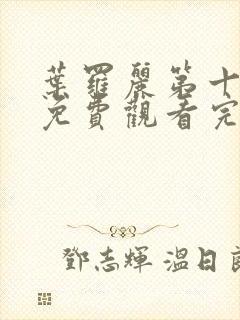 葉羅麗第十
免費觀看完
鄧志輝 溫日良